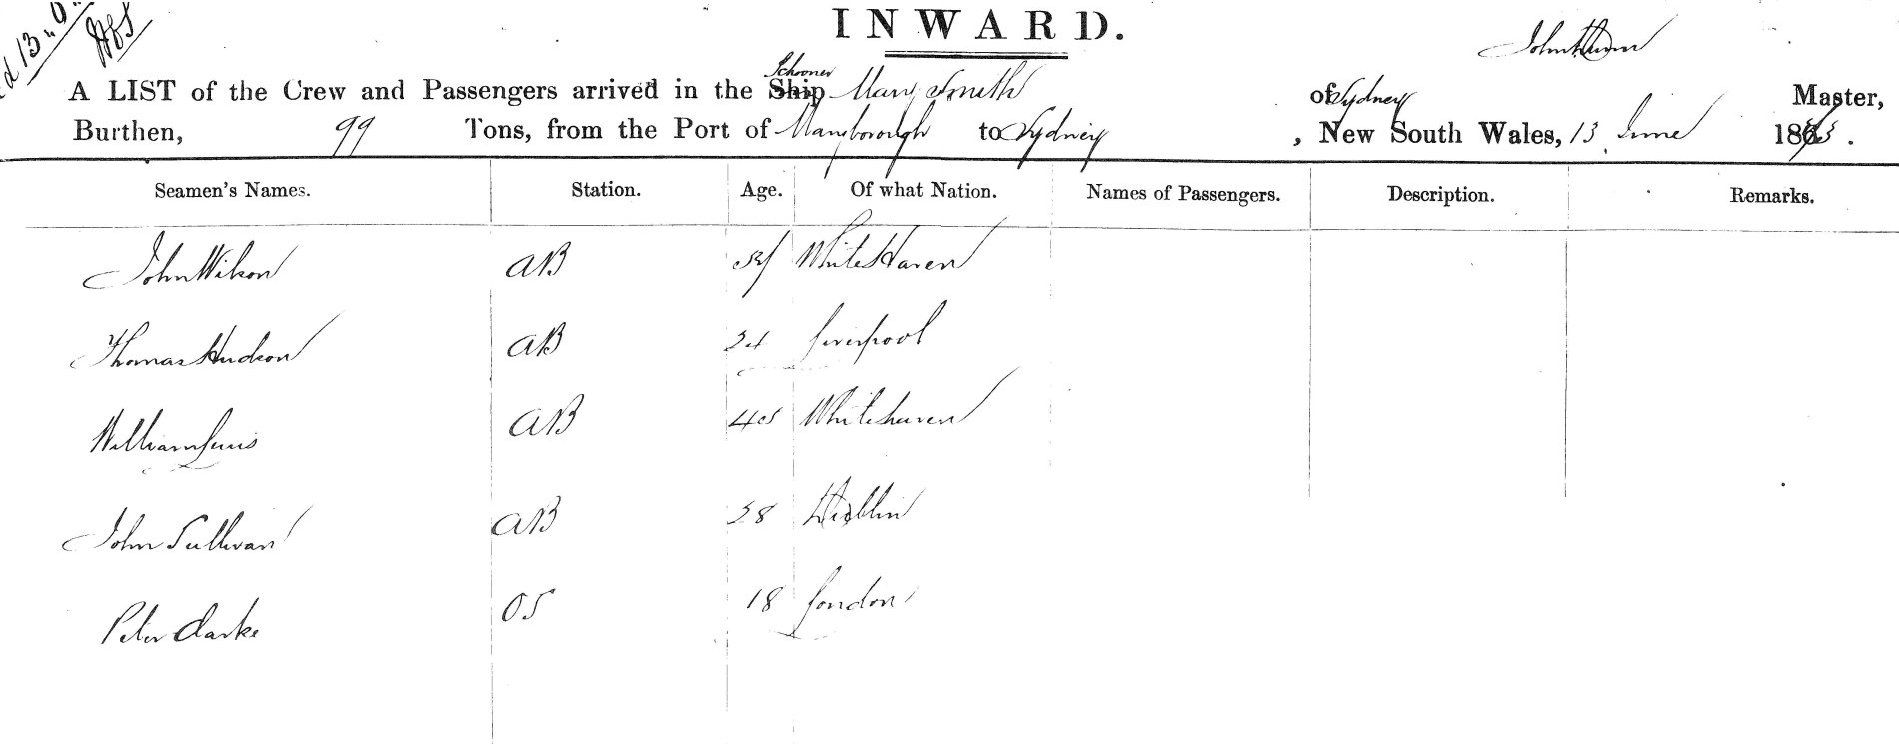 INWARD.
A LIST of the Crew and Passengers arrived in the Ship Schooner Mary Smith of Sydney John Master,
Burthen, 99 Tons, from the Port of Maryborough to Sydney, New South Wales, 13 June 1863.
Seamen's Names. Station. Age. Of what Nation. Names of Passengers. Description. Remarks.
John Wilson AB WhiteHaven
Thomas Hudson AB 24 Liverpool
William Lewis AB 40 Whitehaven
John Sullivan AB 28 Dublin
Peter Clarke OS 18 London